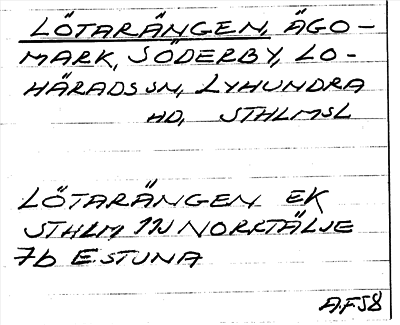 LÖTARÄNGEN, ÄGO-
MARK, SÖDERBY, LO-
HÄRADS SN, LYHUNDRA
HD, STHLMSL
LÖTARÄNGEN EK
STHLM 11J NORRTÄLJE
7b ESTUNA
AFS8